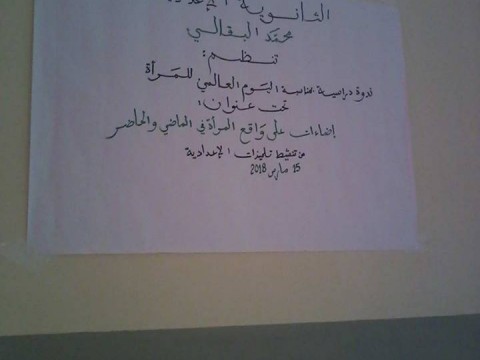 الثانوية الإعدادية
محمد البقالي
تنظم:
ندوة دراسية بمناسبة اليوم العالمي للمرأة
تحت عنوان:
إضاءات على واقع المرأة في الماضي والحاضر
من تنشيط تلميذات الإعدادية
15 مارس 2018